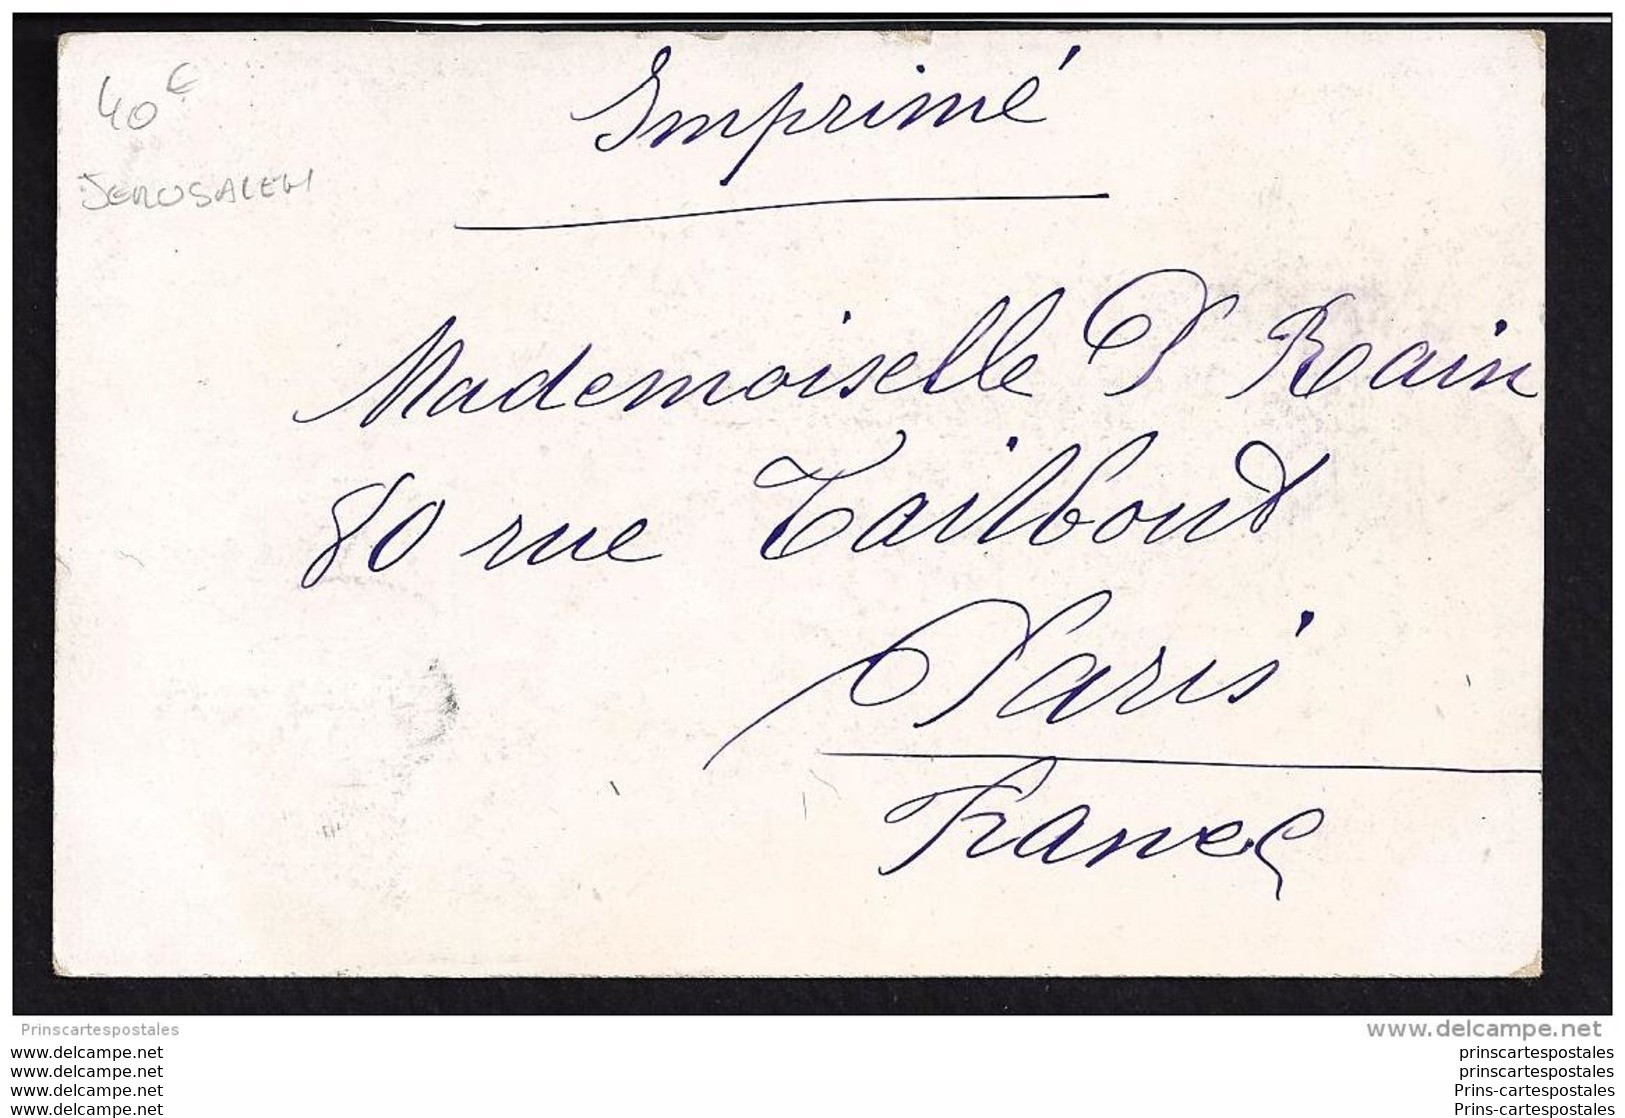 40€
JERUSALEM
Imprimé
Mademoiselle P Rain
80 rue Taitbout
Paris
France
Prinscartespostales
www.delcampe.net
www.delcampe.net
www.delcampe.net
www.delcampe.net
www.delcampe.net
prinscartespostales
prinscartespostales
Prins-cartespostales
Prins-cartespostales